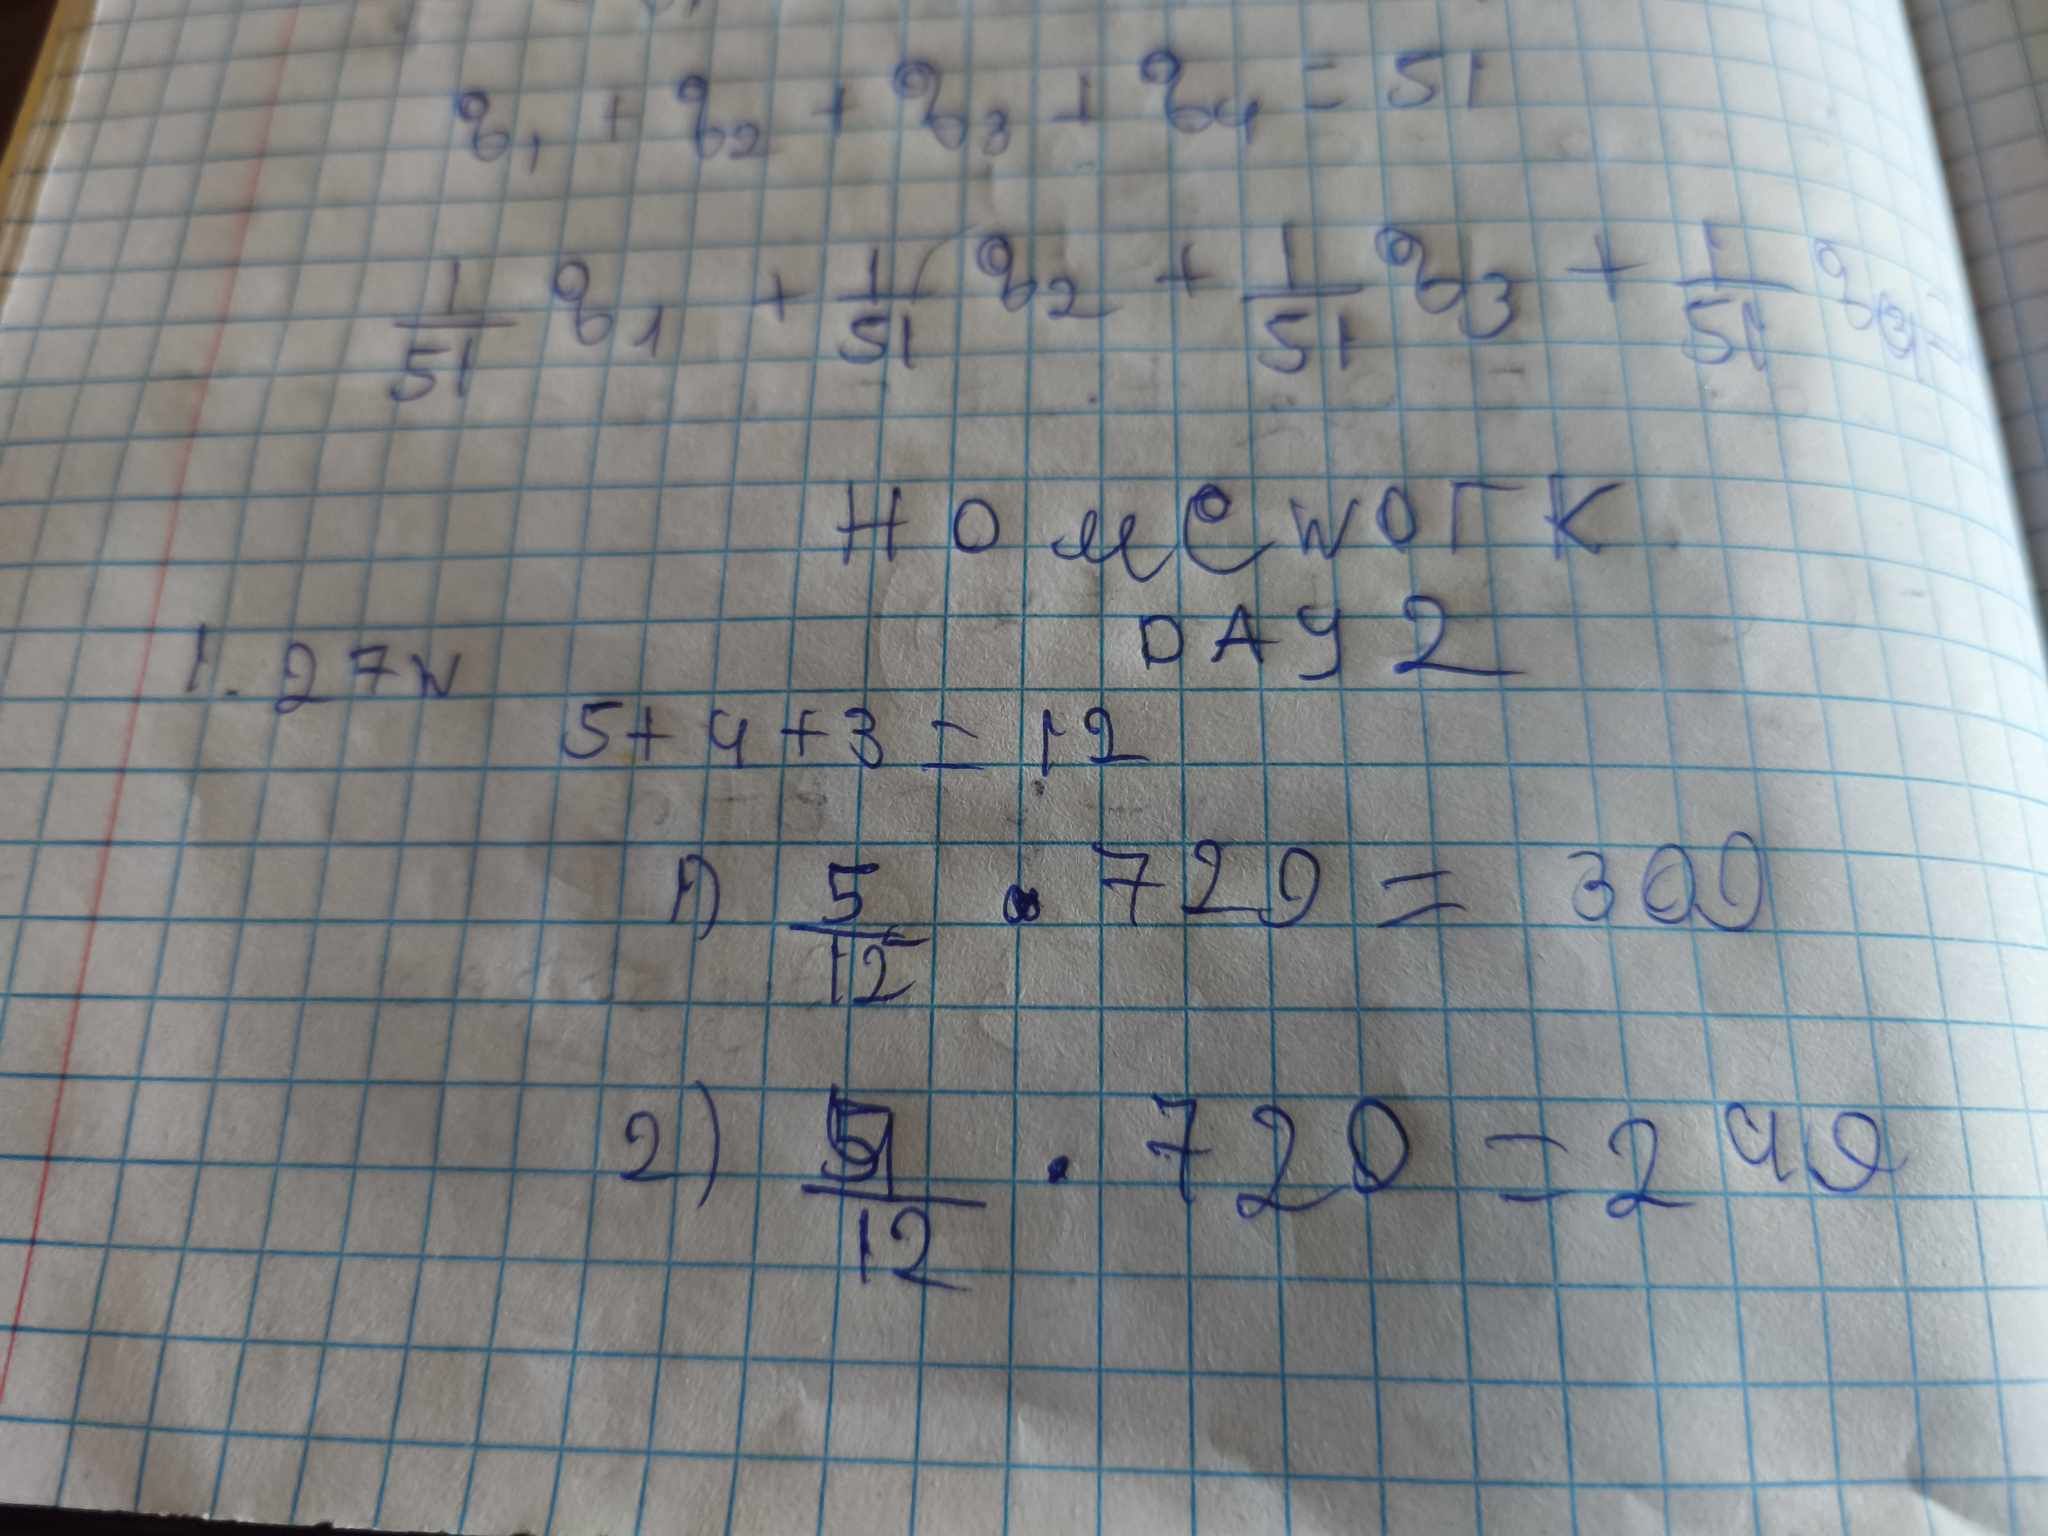 q₁ + q₂ + q₃ + q₄ = 51
1/51 q₁ + 1/51 q₂ + 1/51 q₃ + 1/51
HOMEWORK
DAY 2
1. 27w
5+4+3 = 12
1) 5/12 • 720 = 300
2) 4/12 • 720 = 240